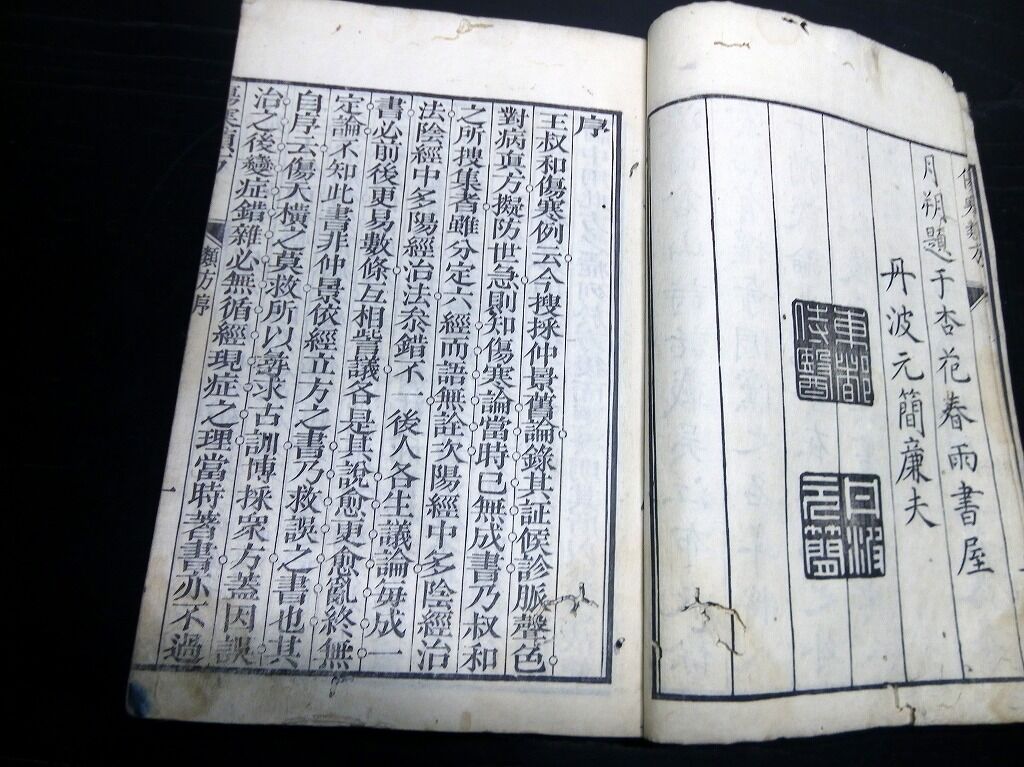 傷寒類方
月朔題于杏花春雨書屋
丹波元簡廉夫
東都侍醫
丹波元簡
序
王叔和傷寒例云今搜採仲景舊論錄其証候診脈聲色
對病真方擬防世急則知傷寒論當時已無成書乃叔和
之所搜集者雖分定六經而語無詮次陽經中多陰經治
法陰經中多陽經治法叅錯不一後人各生議論每成一
書必前後更易數條互相訾議各是其說愈更愈亂終無
定論不知此書非仲景依經立方之書乃救誤之書也其
自序云傷夭橫之莫救所以尋求古訓博採衆方蓋因誤
治之後變症錯雜必無循經現症之理當時著書亦不過
傷寒類方
類方序
一